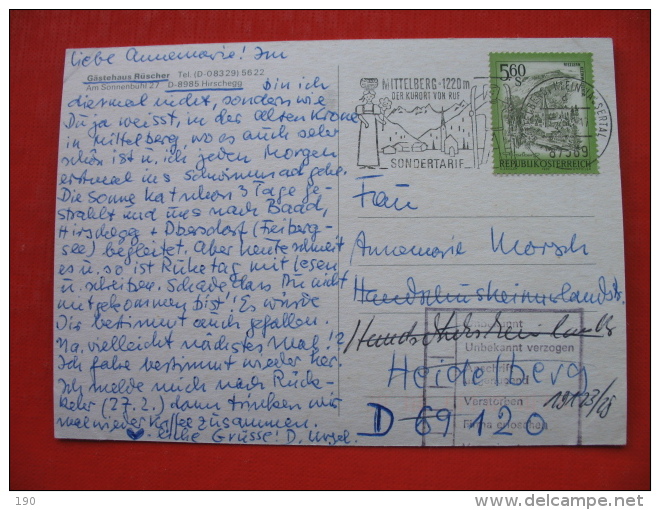 Liebe Annemarie! Im
Gästehaus Rüscher Tel. (D-08329) 5622
Am Sonnenbühl 27 D-8985 Hirschegg
bin ich
diesmal nicht, sondern wie
Du ja weisst, in der Alten Krone
in Mittelberg, wo es auch sehr
schön ist u. ich jeden Morgen
erstmal ins Schwimmbad gehe.
Die Sonne hat schon 3 Tage ge-
strahlt und uns nach Baad,
Hirschegg + Oberstdorf (Freiberg-
see) begleitet. Aber heute schneit
es u. so ist Ruhetag mit Lesen
u. schreiben. Schade dass Du nicht
mitgekommen bist! Es würde
Dir bestimmt auch gefallen.
Na, vielleicht nächstes Mal!?
Ich fahre bestimmt wieder her.
Ich melde mich nach Rück-
kehr (27.2.) dann trinken wir
mal wieder Kaffee zusammen.
Liebe Grüsse! D. Ursel
MITTELBERG · 1220 m
DER KURORT VON RUF
SONDERTARIF
5,60
S
REPUBLIK ÖSTERREICH
Frau
Annemarie Morsch
Handschusheimerlandstr.
Heidelberg
D 69120
Unbekannt verzogen
Verstorben
190
www.delcampe.net